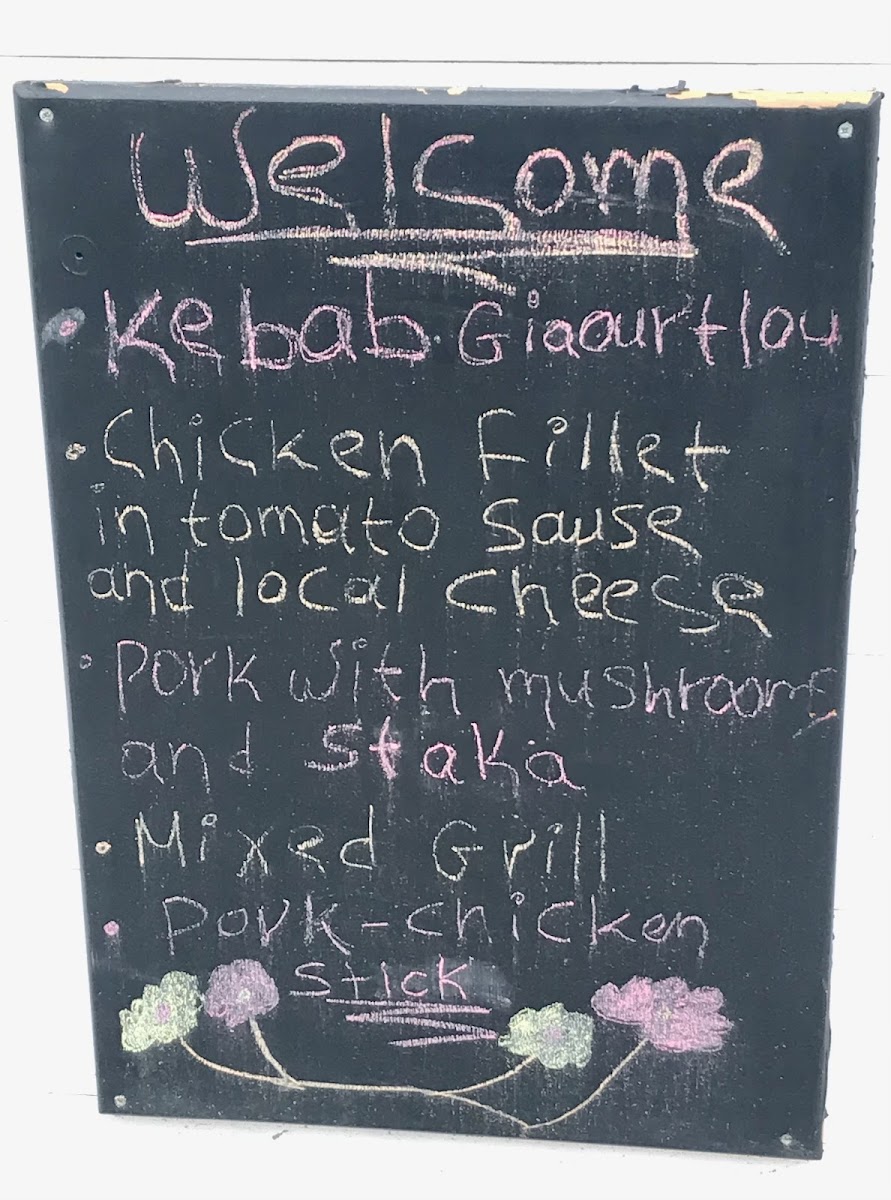 Welcome
• Kebab Giaourtlou
• Chicken fillet
in tomato sause
and local cheese
• Pork with mushrooms
and staka
• Mixed Grill
• Pork-chicken
stick